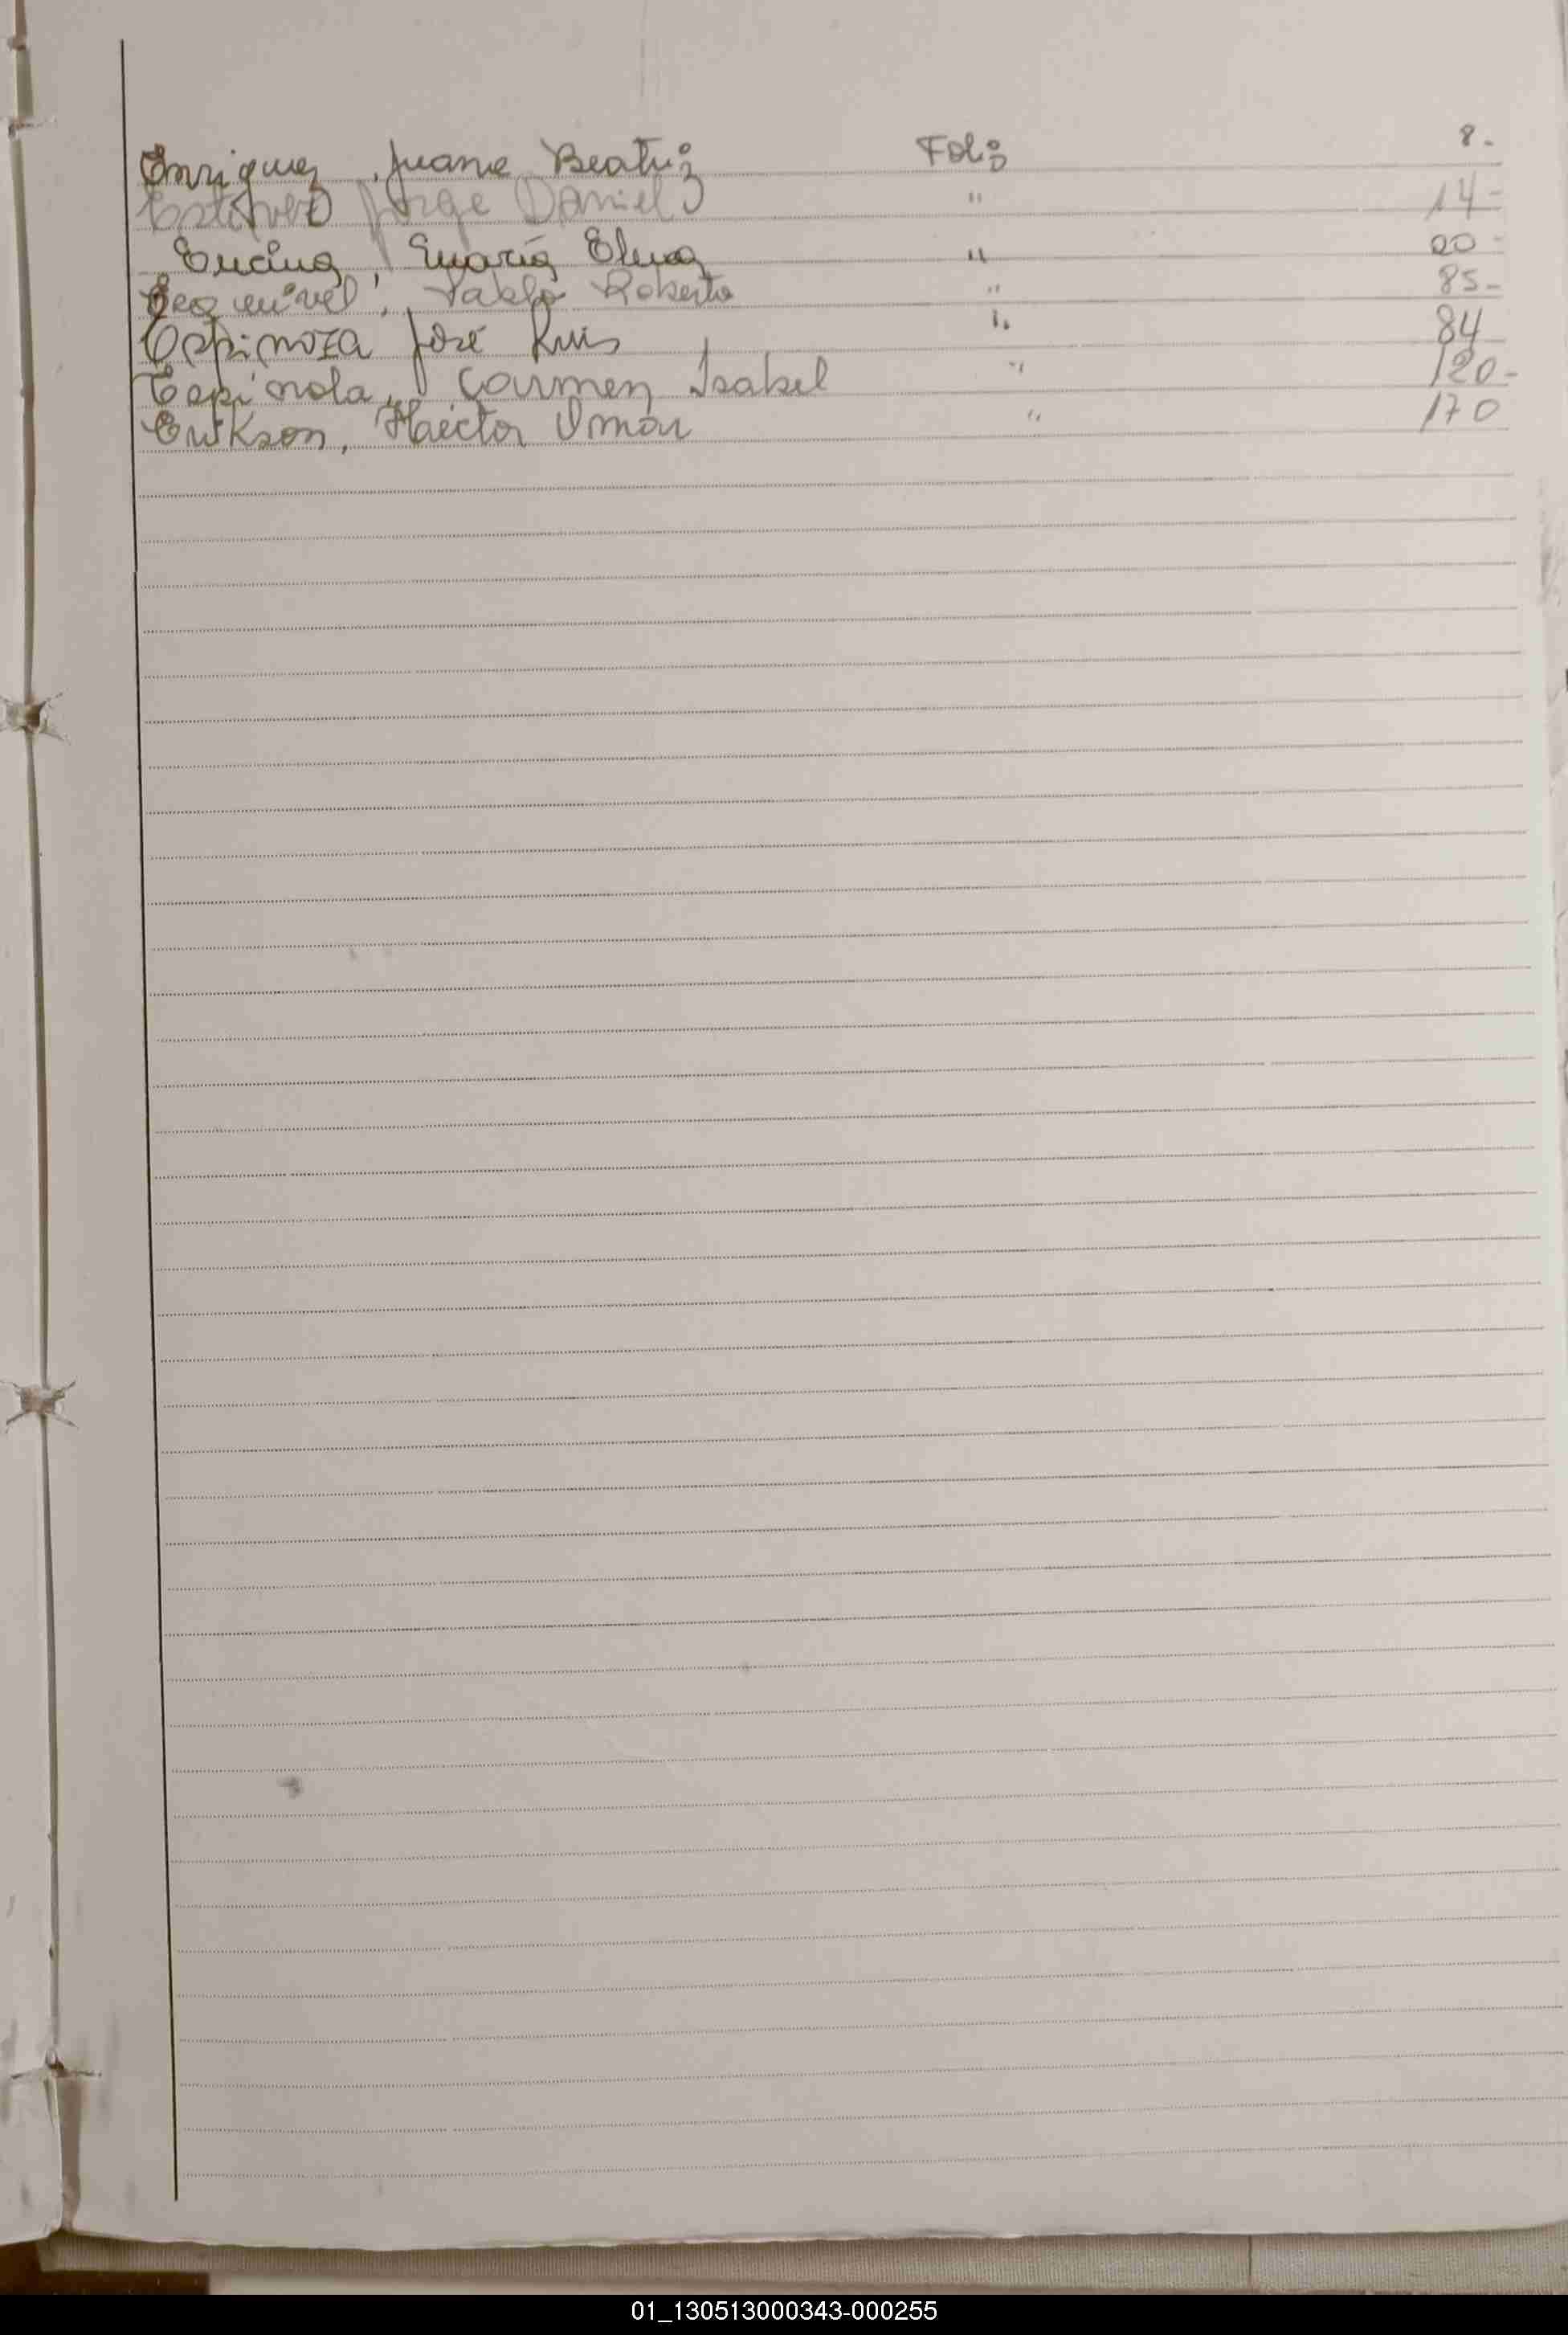 Enriquez, Juana Beatriz Folio 8.-
Estevez Jorge Daniel " 14-
Encina, María Elena " 20-
Esquivel, Pablo Roberto " 85-
Espinoza José Luis " 84
Espínola, Carmen Isabel " 120-
Erikson, Héctor Omar " 170
01_130513000343-000255